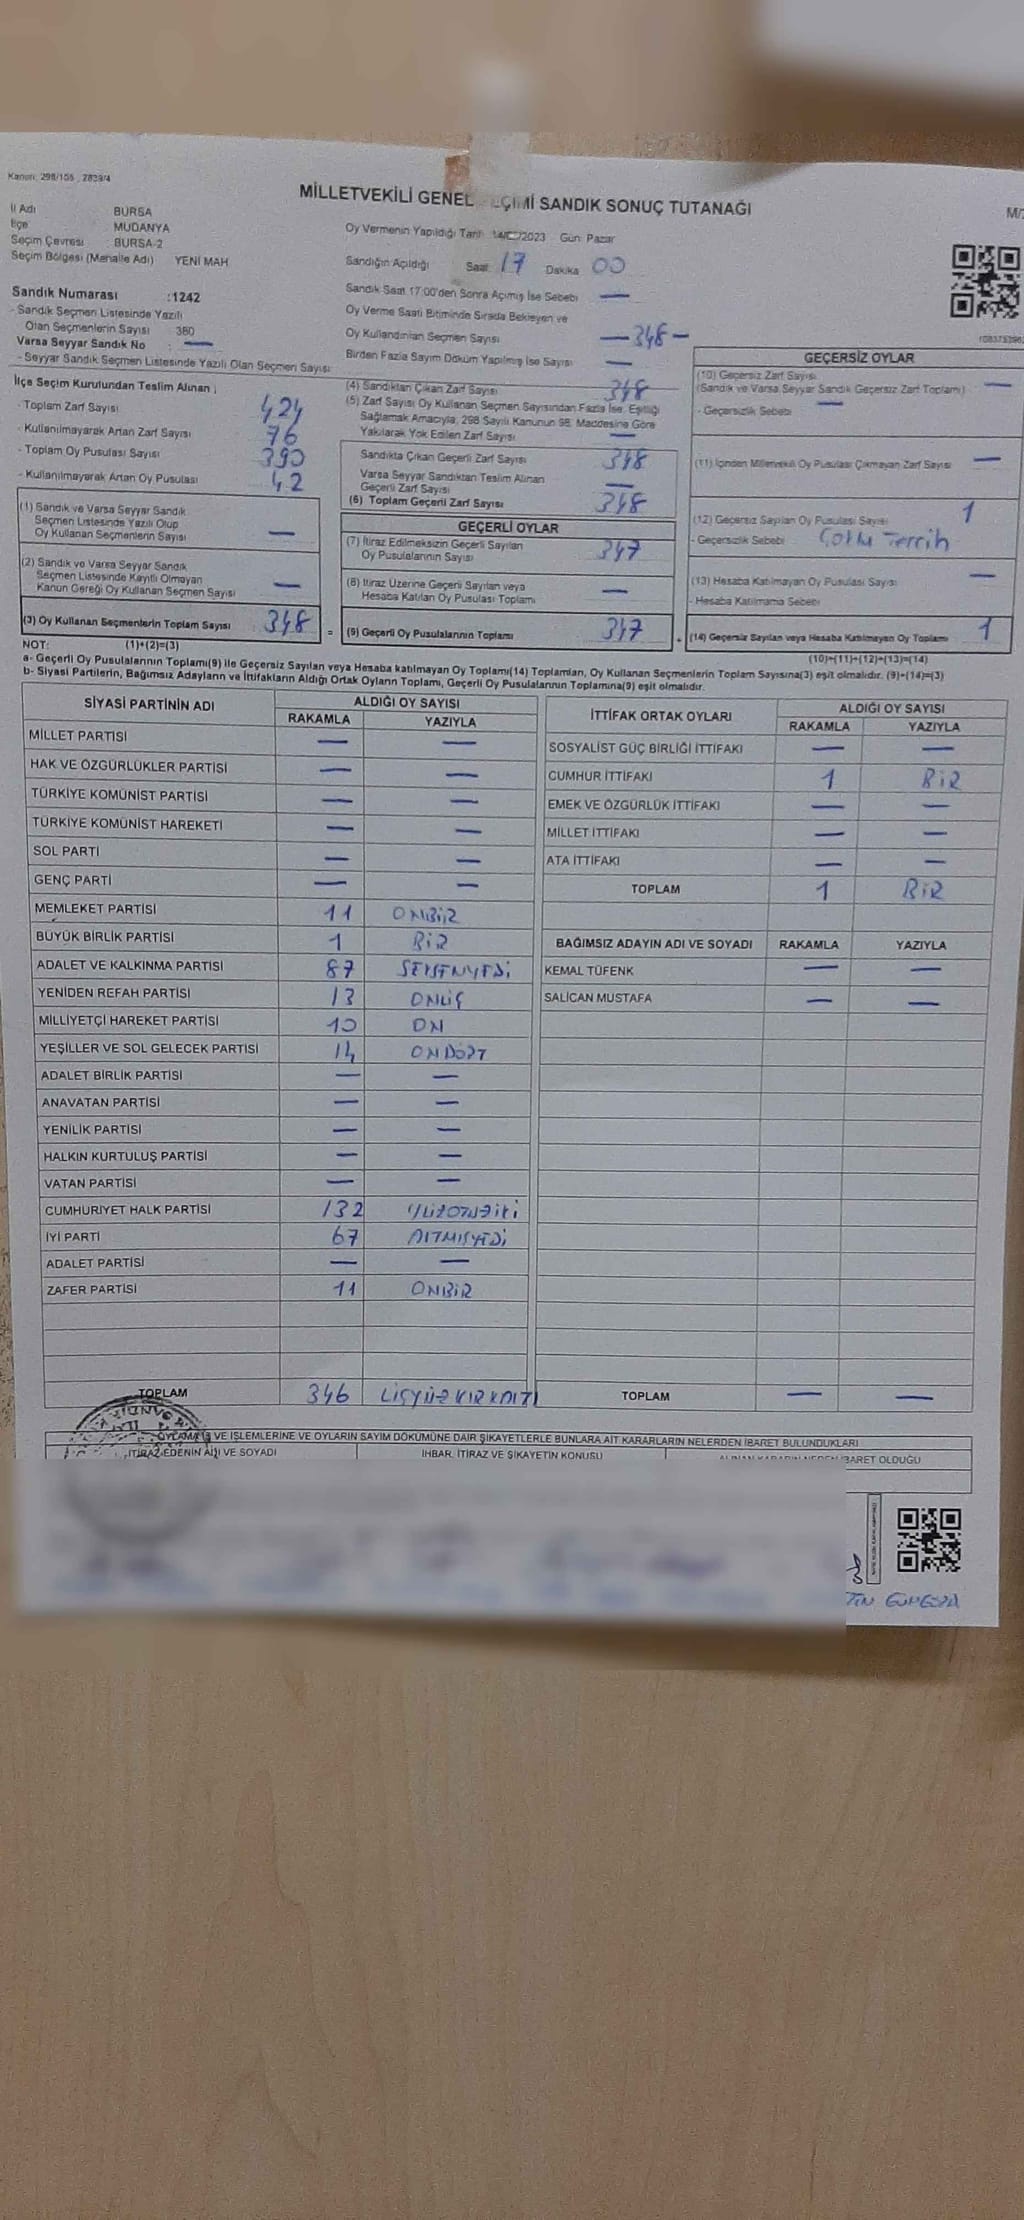 Kanun: 298/105 , 2839/4
MİLLETVEKİLİ GENEL SEÇİMİ SANDIK SONUÇ TUTANAĞI
İl Adı BURSA
İlçe MUDANYA
Seçim Çevresi : BURSA-2
Seçim Bölgesi (Mahalle Adı) YENİ MAH
Oy Vermenin Yapıldığı Tarih 2023 Gün: Pazar
Sandığın Açıldığı Saat: 17 Dakika 00
Sandık Saat 17:00'den Sonra Açılmış İse Sebebi —
Oy Verme Saati Bitiminde Sırada Bekleyen ve
Oy Kullandırılan Seçmen Sayısı — 348 —
Birden Fazla Sayım Döküm Yapılmış İse Sayısı —
Sandık Numarası :1242
- Sandık Seçmen Listesinde Yazılı
Olan Seçmenlerin Sayısı 380
Varsa Seyyar Sandık No : —
- Seyyar Sandık Seçmen Listesinde Yazılı Olan Seçmen Sayısı
İlçe Seçim Kurulundan Teslim Alınan ;
- Toplam Zarf Sayısı 424
- Kullanılmayarak Artan Zarf Sayısı 76
- Toplam Oy Pusulası Sayısı 390
- Kullanılmayarak Artan Oy Pusulası 42
(1) Sandık ve Varsa Seyyar Sandık
Seçmen Listesinde Yazılı Olup
Oy Kullanan Seçmenlerin Sayısı —
(2) Sandık ve Varsa Seyyar Sandık
Seçmen Listesinde Kayıtlı Olmayan
Kanun Gereği Oy Kullanan Seçmen Sayısı —
(3) Oy Kullanan Seçmenlerin Toplam Sayısı 348
(4) Sandıktan Çıkan Zarf Sayısı 348
(5) Zarf Sayısı Oy Kullanan Seçmen Sayısından Fazla İse, Eşitliği
Sağlamak Amacıyla, 298 Sayılı Kanunun 98. Maddesine Göre
Yakılarak Yok Edilen Zarf Sayısı —
Sandıkta Çıkan Geçerli Zarf Sayısı 348
Varsa Seyyar Sandıktan Teslim Alınan
Geçerli Zarf Sayısı —
(6) Toplam Geçerli Zarf Sayısı 348
GEÇERLİ OYLAR
(7) İtiraz Edilmeksizin Geçerli Sayılan
Oy Pusulalarının Sayısı 347
(8) İtiraz Üzerine Geçerli Sayılan veya
Hesaba Katılan Oy Pusulası Toplamı —
= (9) Geçerli Oy Pusulalarının Toplamı 347
GEÇERSİZ OYLAR
(10) Geçersiz Zarf Sayısı
(Sandık ve Varsa Seyyar Sandık Geçersiz Zarf Toplamı) —
- Geçersizlik Sebebi —
(11) İçinden Milletvekili Oy Pusulası Çıkmayan Zarf Sayısı —
(12) Geçersiz Sayılan Oy Pusulası Sayısı 1
- Geçersizlik Sebebi Çoklu Tercih
(13) Hesaba Katılmayan Oy Pusulası Sayısı —
- Hesaba Katılmama Sebebi
+ (14) Geçersiz Sayılan veya Hesaba Katılmayan Oy Toplamı 1
NOT: (1)+(2)=(3) (10)+(11)+(12)+(13)=(14)
a- Geçerli Oy Pusulalarının Toplamı(9) ile Geçersiz Sayılan veya Hesaba katılmayan Oy Toplamı(14) Toplamları, Oy Kullanan Seçmenlerin Toplam Sayısına(3) eşit olmalıdır. (9)+(14)=(3)
b- Siyasi Partilerin, Bağımsız Adayların ve İttifakların Aldığı Ortak Oyların Toplamı, Geçerli Oy Pusulalarının Toplamına(9) eşit olmalıdır.
SİYASİ PARTİNİN ADI ALDIĞI OY SAYISI
RAKAMLA YAZIYLA
MİLLET PARTİSI — —
HAK VE ÖZGÜRLÜKLER PARTİSİ — —
TÜRKİYE KOMÜNİST PARTİSİ — —
TÜRKİYE KOMÜNİST HAREKETİ — —
SOL PARTİ — —
GENÇ PARTİ — —
MEMLEKET PARTİSİ 11 ONBİR
BÜYÜK BİRLİK PARTİSİ 1 BİR
ADALET VE KALKINMA PARTİSİ 87 SEKSENYEDİ
YENİDEN REFAH PARTİSİ 13 ONÜÇ
MİLLİYETÇİ HAREKET PARTİSİ 10 ON
YEŞİLLER VE SOL GELECEK PARTİSİ 14 ONDÖRT
ADALET BİRLİK PARTİSİ — —
ANAVATAN PARTİSİ — —
YENİLİK PARTİSİ — —
HALKIN KURTULUŞ PARTİSİ — —
VATAN PARTİSİ — —
CUMHURİYET HALK PARTİSİ 132 YÜZOTUZİKİ
İYİ PARTİ 67 ALTMIŞYEDİ
ADALET PARTİSİ — —
ZAFER PARTİSİ 11 ONBİR
TOPLAM 346 ÜÇYÜZKIRKALTI
İTTİFAK ORTAK OYLARI ALDIĞI OY SAYISI
RAKAMLA YAZIYLA
SOSYALİST GÜÇ BİRLİĞİ İTTİFAKI — —
CUMHUR İTTİFAKI 1 BİR
EMEK VE ÖZGÜRLÜK İTTİFAKI — —
MİLLET İTTİFAKI — —
ATA İTTİFAKI — —
TOPLAM 1 BİR
BAĞIMSIZ ADAYIN ADI VE SOYADI RAKAMLA YAZIYLA
KEMAL TÜFENK — —
SALİCAN MUSTAFA — —
TOPLAM — —
VE İŞLEMLERİNE VE OYLARIN SAYIM DÖKÜMÜNE DAİR ŞİKAYETLERLE BUNLARA AİT KARARLARIN NELERDEN İBARET BULUNDUKLARI
İTİRAZ EDENİN ADI VE SOYADI İHBAR, İTİRAZ VE ŞİKAYETİN KONUSU İBARET OLDUĞU